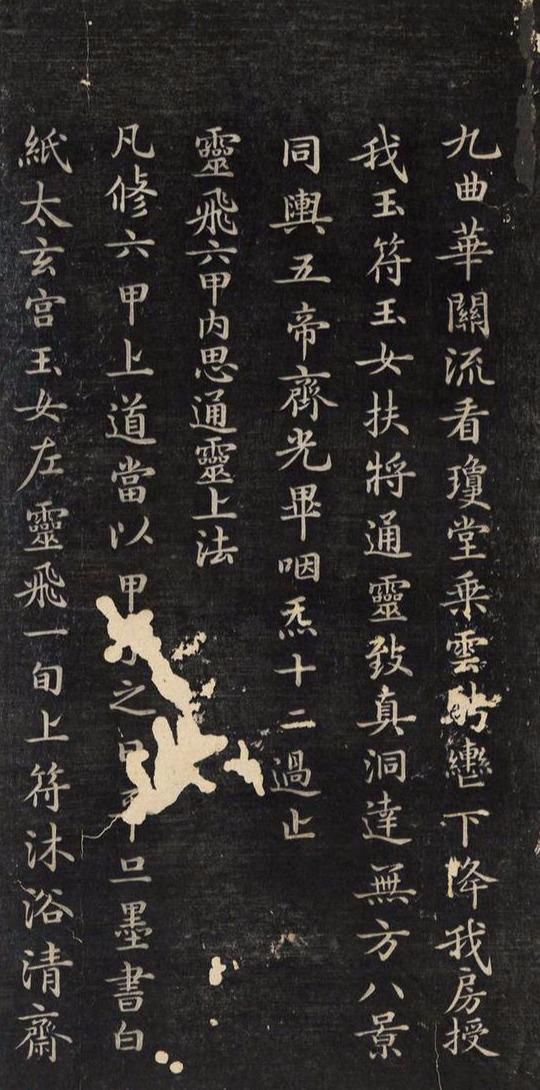 九曲華關流看瓊堂乘雲轡下降我房授
我玉符玉女扶將通靈致真洞達無方八景
同輿五帝齊光畢咽炁十二過止
靈飛六甲内思通靈上法
凡脩六甲上道當以甲之旦墨書白
紙太玄宫玉女左靈飛一旬上符沐浴清齋